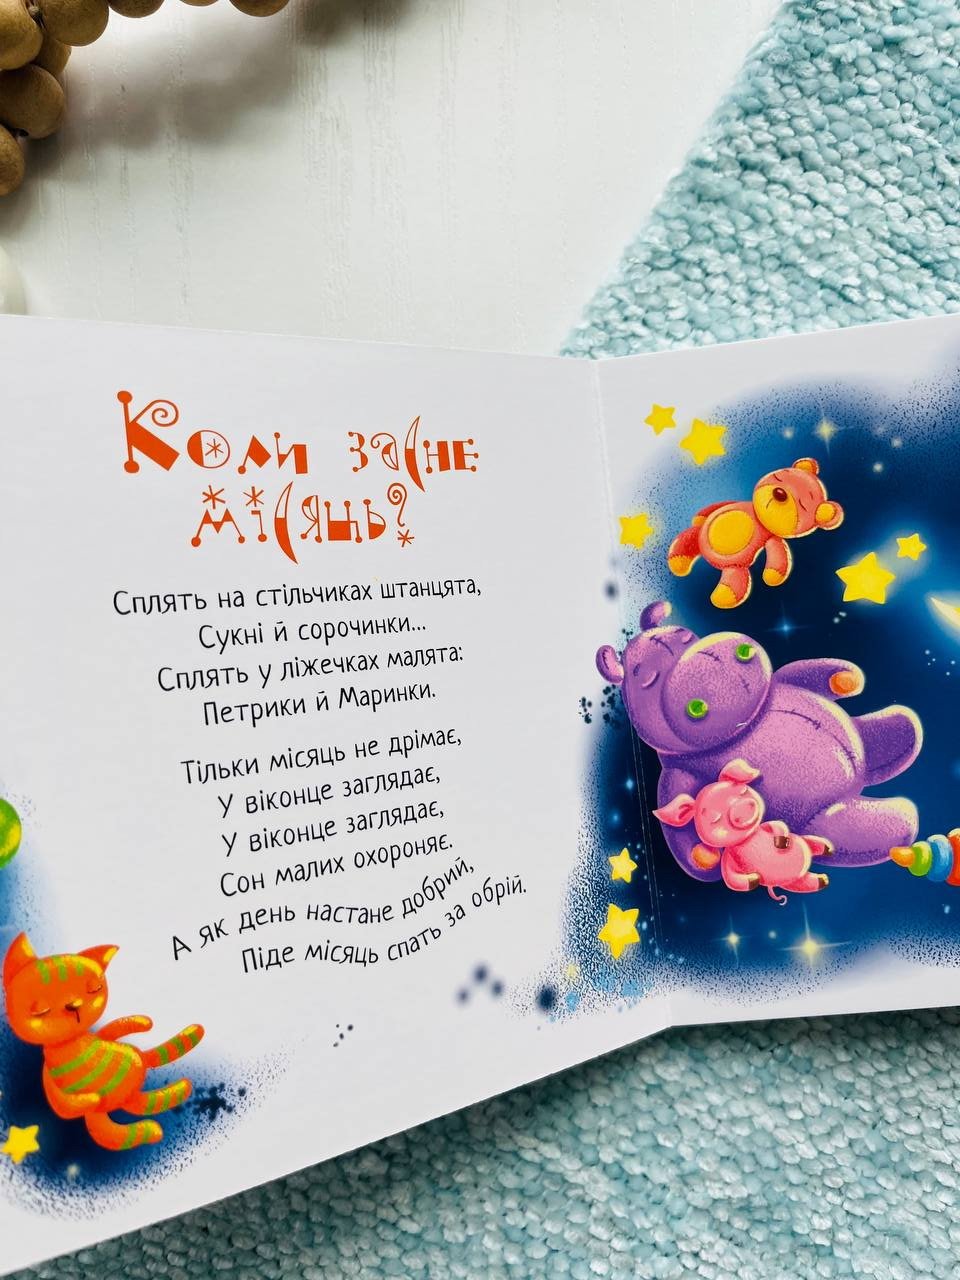 Коли засне
місяць?
Сплять на стільчиках штанцята,
Сукні й сорочинки...
Сплять у ліжечках малята:
Петрики й Маринки.
Тільки місяць не дрімає,
У віконце заглядає,
У віконце заглядає,
Сон малих охороняє.
А як день настане добрий,
Піде місяць спать за обрій.